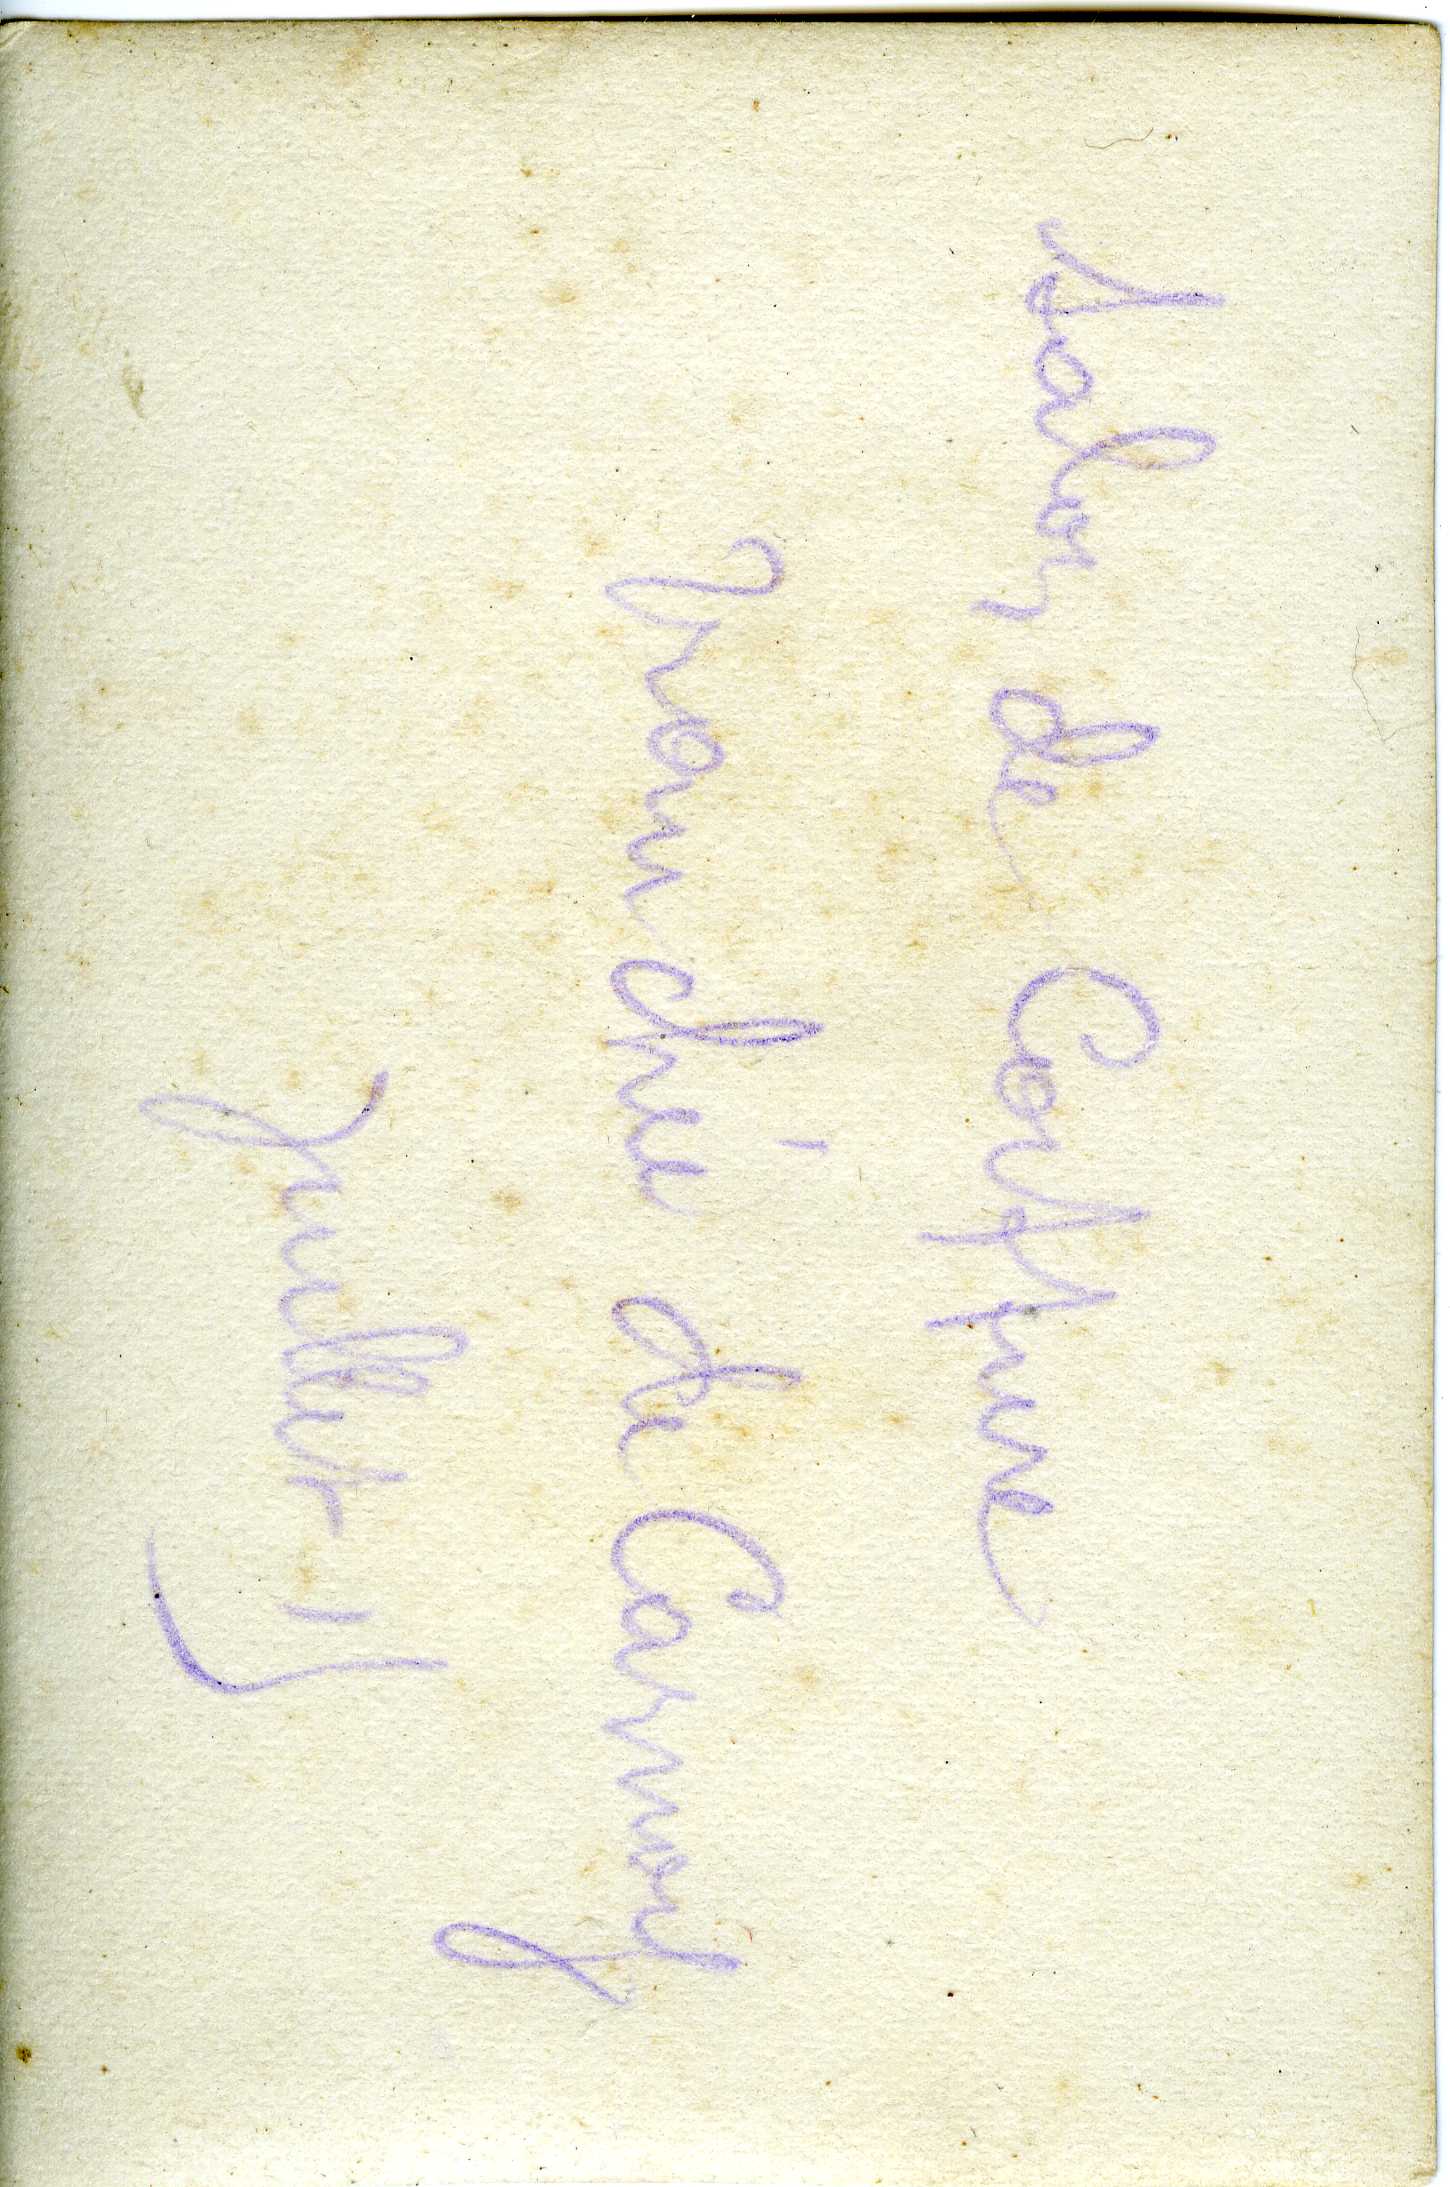 Salon de Coiffure
Tranchée de Carnoy
Juillet 15